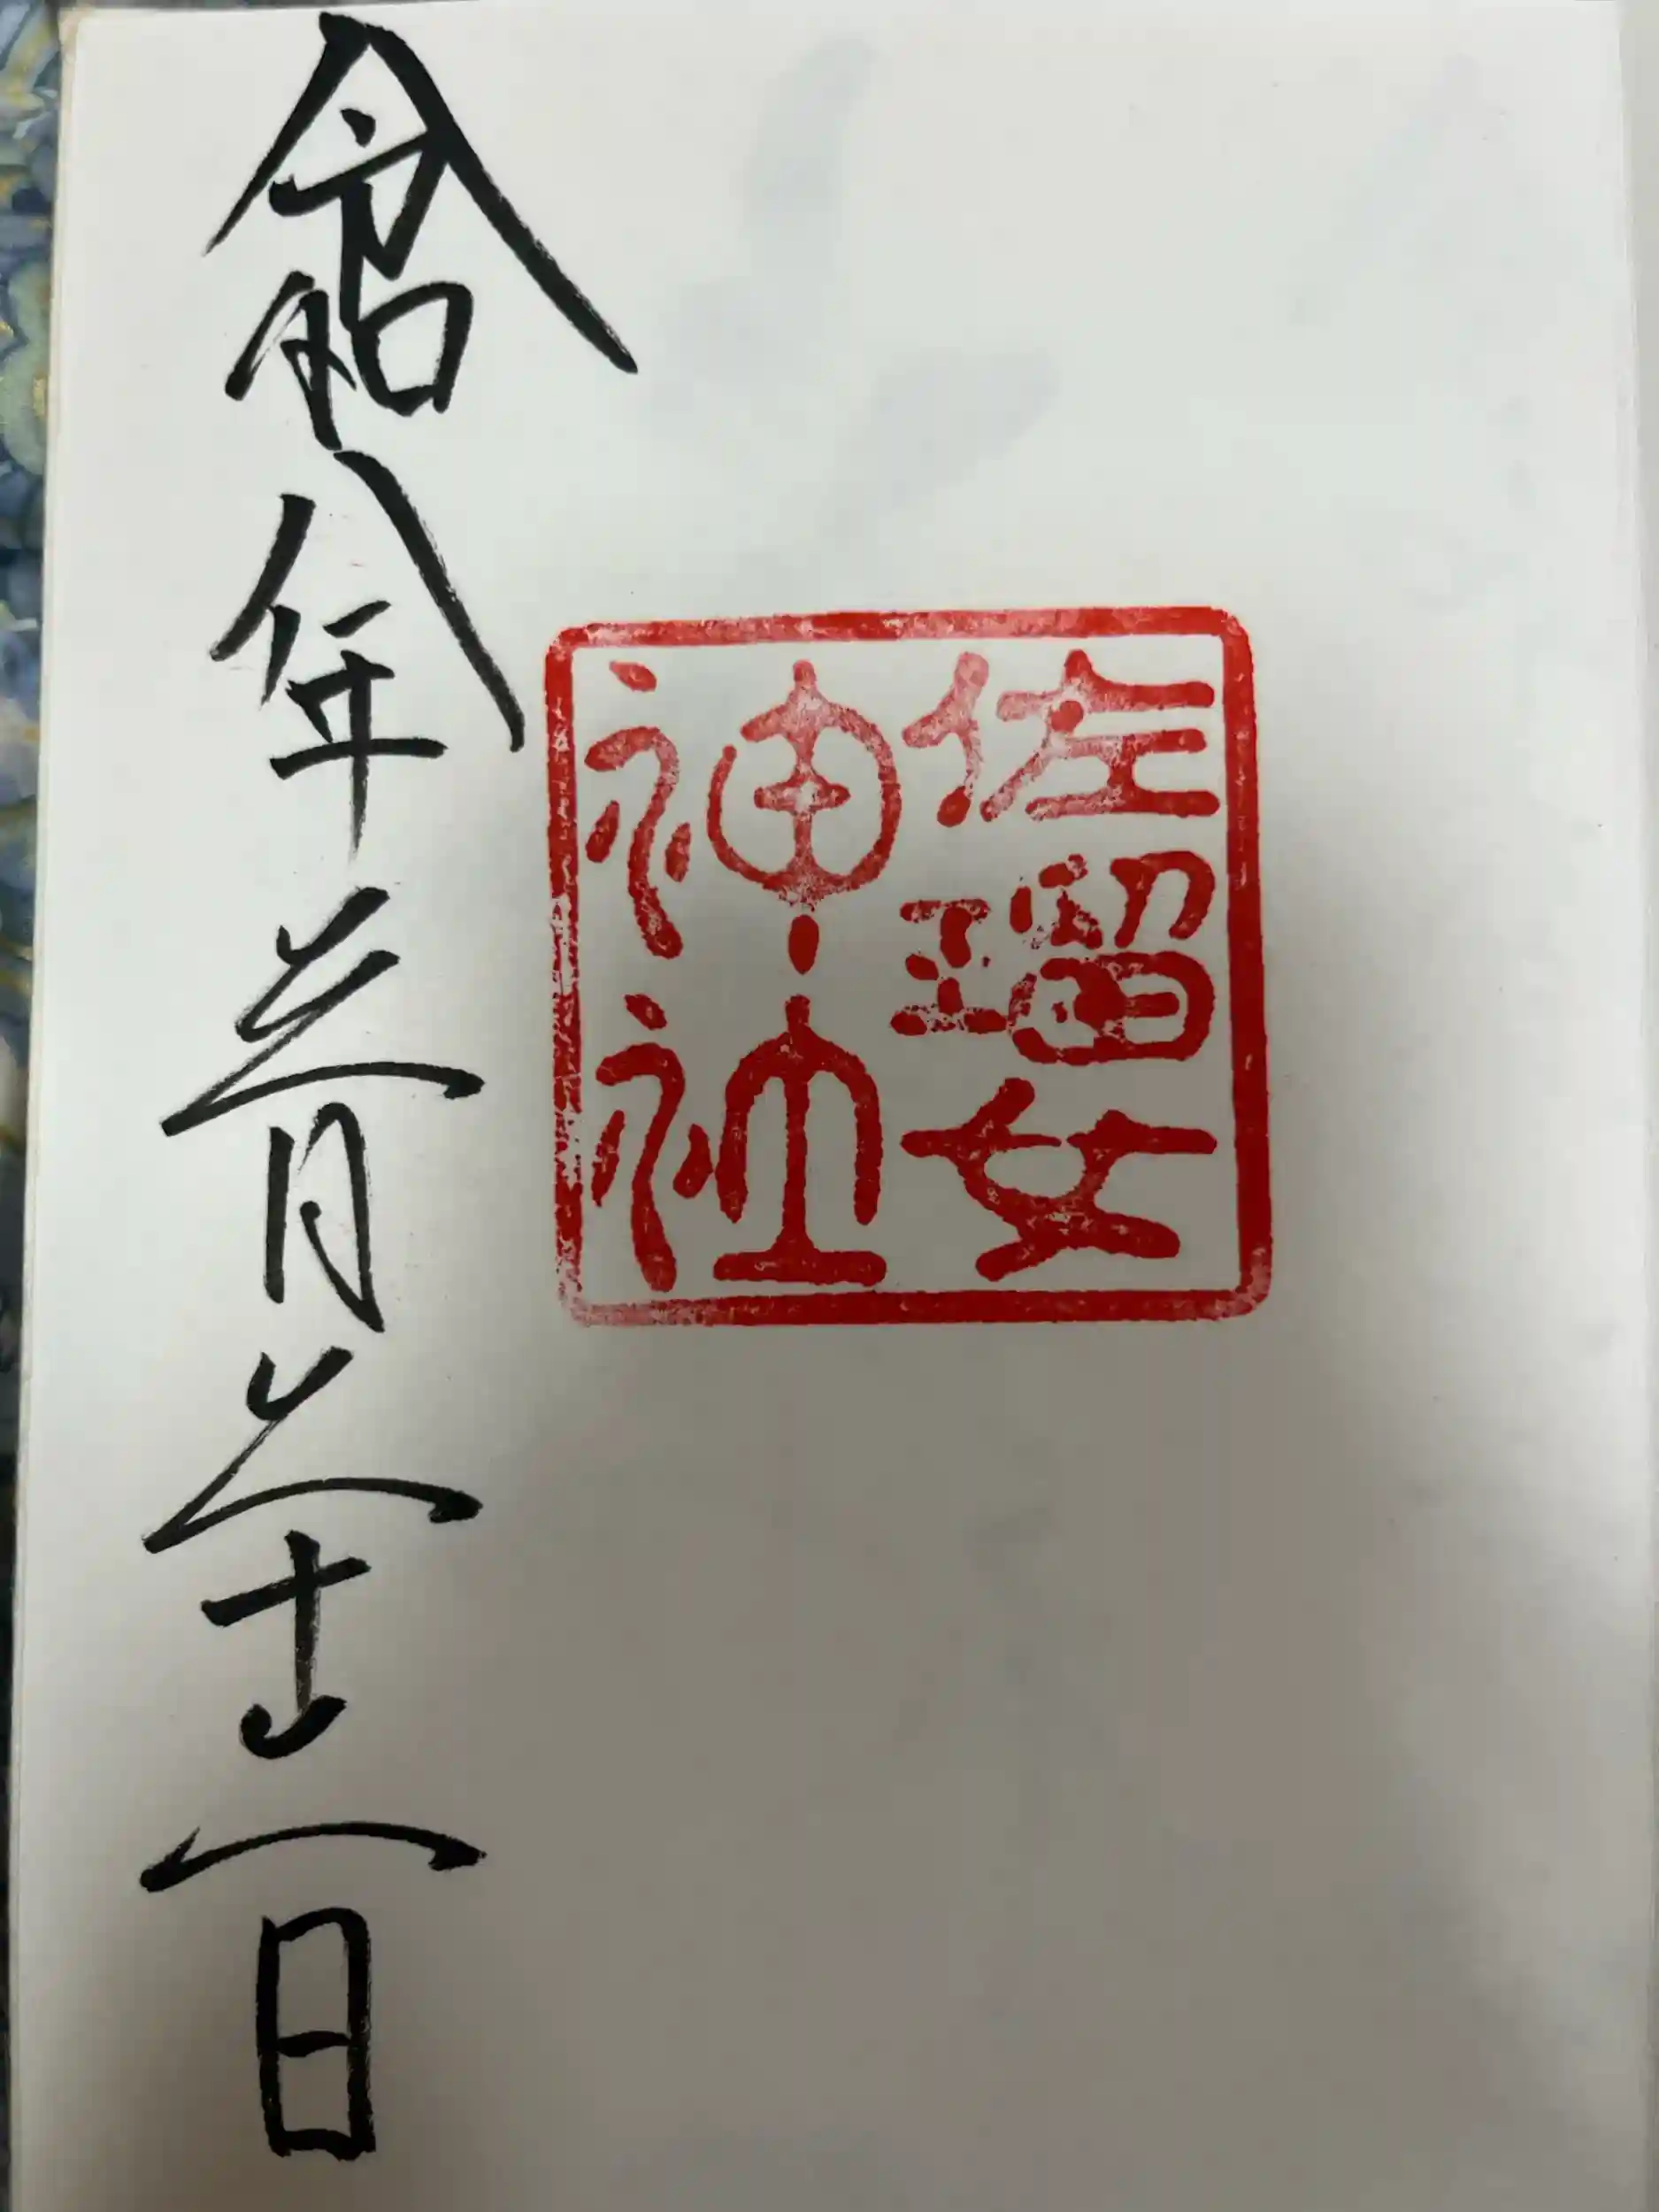 佐瑠女
神社
令和八年三月二十二日